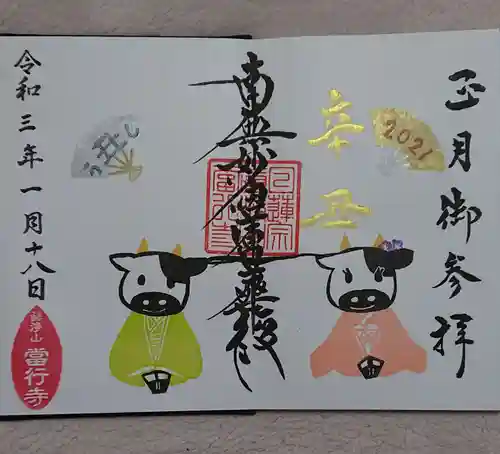 正月御参拝
辛丑
2021
南無妙法蓮華経
丑し
令和三年一月十八日
當行寺